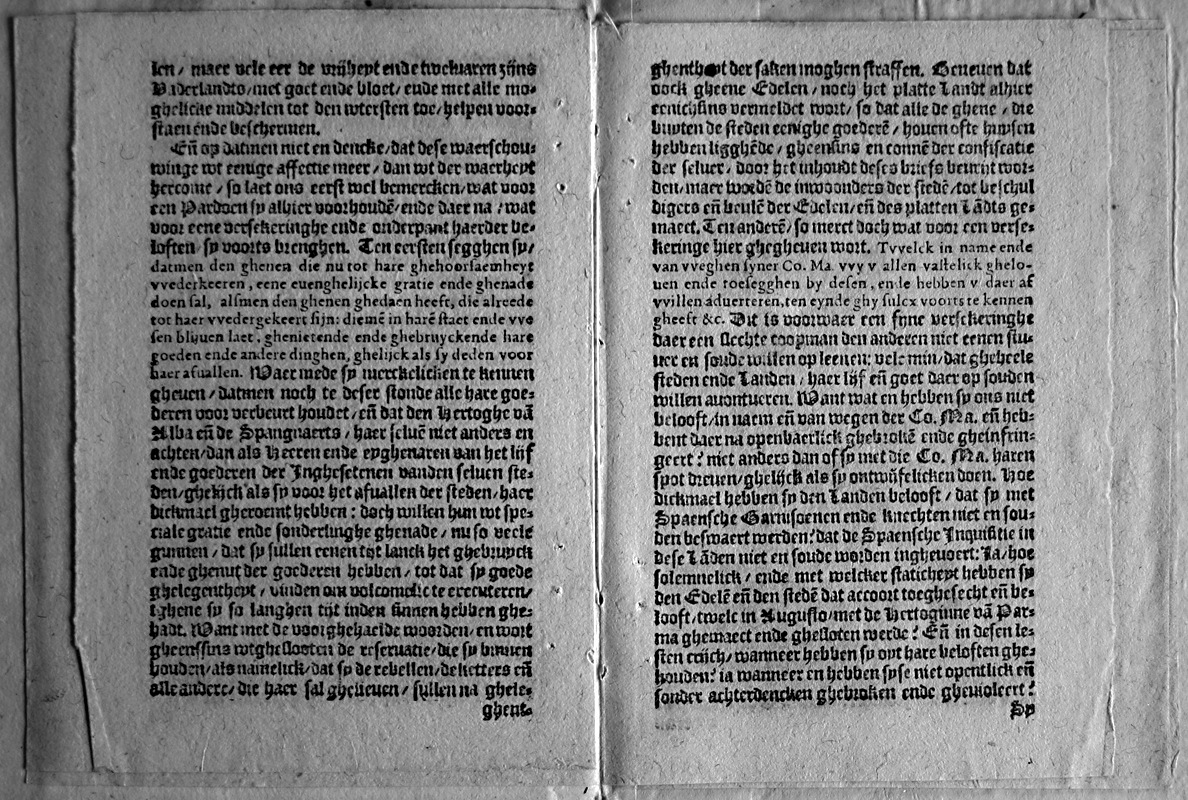 len/ maer vele eer de vrijheyt ende welvaren zijns
Vaderlandts/ met goet ende bloet/ ende met alle mo-
ghelicke middelen tot den wtersten toe/ helpen voor-
staen ende beschermen.
Eñ op datmen niet en dencke/ dat dese waerschou-
winge wt eenige affectie meer/ dan wt der waerheyt
hercome/ so laet ons eerst wel bemercken/ wat voor
een Pardoen sy alhier voorhoudē/ ende daer na/ wat
voor eene versekeringhe ende onderpant haerder be-
loften sy voorts brenghen. Ten eersten segghen sy/
datmen den ghenen die nu tot hare ghehoorsaemheyt
vvederkeeren, eene euenghelijcke gratie ende ghenade
doen sal, alsmen den ghenen ghedaen heeft, die alreede
tot haer vvedergekeert sijn: diemē in harē staet ende vve
sen blijuen laet, ghenietende ende ghebruyckende hare
goeden ende andere dinghen, ghelijck als sy deden voor
haer afuallen. Waer mede sy merckelicken te kennen
gheuen/ datmen noch te deser stonde alle hare goe-
deren voor verbeurt houdet/ eñ dat den Hertoghe vā
Alba eñ de Spangnaerts/ haer seluē niet anders en
achten/ dan als Heeren ende eyghenaren van het lijf
ende goederen der Inghesetenen vanden seluen ste-
den/ ghelijck als sy voor het afuallen der steden/ haer
dickmael gheroemt hebben: doch willen hun wt spe-
ciale gratie ende sonderlinghe ghenade/ nu so veele
gunnen/ dat sy sullen eenen tijt lanck het ghebruyck
ende ghenut der goederen hebben/ tot dat sy goede
ghelegentheyt/ vinden om volcomelic te executeren/
tghene sy so langhen tijt inden sinnen hebben ghe-
hadt. Want met de voorghehaelde woorden/ en wort
gheenssins wtghesloten de reseruatie/ die sy binnen
houden/ als namelick/ dat sy de rebellen/ de ketters eñ
alle andere/ die haer sal ghelieuen/ sullen na ghele-
ghent-
ghentheyt der saken moghen straffen. Beneuen dat
oock gheene Edelen/ noch het platte Landt alhier
eenichsins vermeldet wort/ so dat alle de ghene/ die
buyten de steden eenighe goederē/ houen ofte huysen
hebben ligghēde/ gheensins en connē der confiscatie
der seluer/ door het inhoudt deses briefs beurijt wor-
den/ maer wordē de inwoonders der stedē/ tot beschul
digers eñ beulē der Edelen/ eñ des platten Lādts ge-
maect. Ten anderē/ so merct doch wat voor een verse-
keringe hier ghegheuen wort. Tvvelck in name ende
van vveghen syner Co. Ma. vvy v allen vastelick ghelo-
uen ende toesegghen by desen, ende hebben v daer af
vvillen aduerteren, ten eynde ghy sulcx voorts te kennen
gheeft &c. Dit is voorwaer een fyne versekeringhe
daer een slechte coopman den anderen niet eenen stu-
uer en soude willen op leenen: vele min/ dat gheheele
steden ende Landen/ haer lijf eñ goet daer op souden
willen auontueren. Want wat en hebben sy ons niet
belooft/ in naem eñ van wegen der Co. Ma. eñ heb-
bent daer na openbaerlick ghebrokē ende gheinfrin-
geert? niet anders dan of sy met die Co. Ma. haren
spot dreuen/ ghelijck als sy ontwijfelicken doen. Hoe
dickmael hebben sy den Landen belooft/ dat sy met
Spaensche Garnisoenen ende knechten niet en sou-
den beswaert werden? dat de Spaensche Inquisitie in
dese Lāden niet en soude worden inghevoert: Ja/ hoe
solemnelick/ ende met welcker staticheyt hebben sy
den Edelē eñ den stedē dat accoort toeghesecht eñ be-
looft/ twelc in Augusto/ met de Hertoginne vā Par-
ma ghemaect ende ghesloten werde? Eñ in desen le-
sten crijch/ wanneer hebben sy oyt hare beloften ghe-
houden? ia wanneer en hebben syse niet opentlick eñ
sonder achterdencken ghebroken ende gheuioleert?
Sy